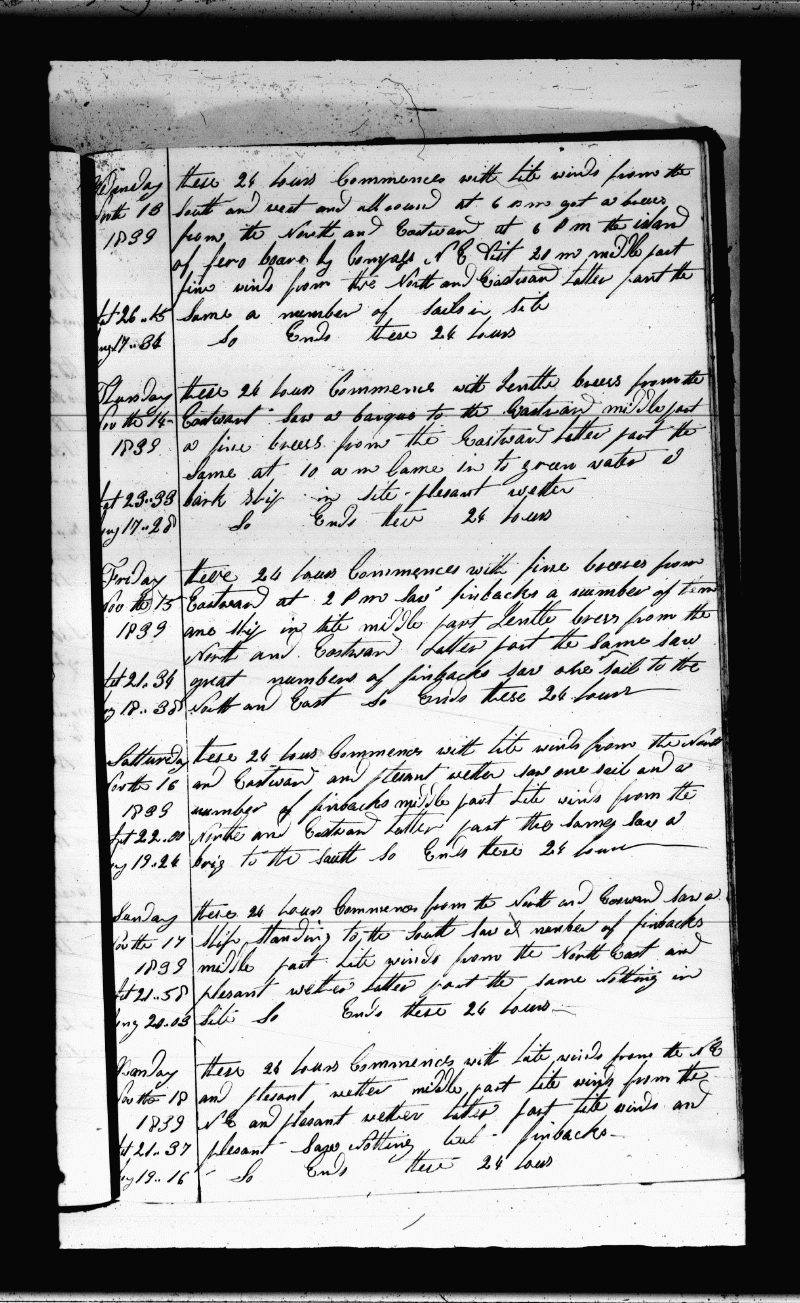 Wedensday these 24 hours Commences with lite winds from the
Novth 13 South and west and all round at 6 a m got a brees
1839 from the North and Eastward at 6 P m the island
of fero boare by Compass N E Dist 20 m middle part
fine winds from the North and Eastward latter part the
Lat 26..15 Same a number of sails in site
Long 17..34 So Ends these 24 hours
Thursday these 24 hours Commence with Jentle breess from the
Novthe 14 Eastward Saw a barque to the Eastward middle part
1839 a fine breess from the Eastward latter part the
Same at 10 a m Came in to green water a
Lat 23..33 bark ship in site plesant wetter
Long 17..28 So Ends these 24 hours
Friday these 24 hours Commences with fine breeses from
Novthe 15 Eastward at 2 P m Saw finbacks a number of tem
1839 one ship in site middle part Jentle brees from the
North and Eastward Latter part the Same saw
Lat 21..34 great numbers of finbacks saw one sail to the
Long 18..38 North and East So Ends these 24 hours
Satturday these 24 hours Commences with lite winds from the North
Novthe 16 and Eastward and plesant wetter saw one sail and a
1839 number of finbacks middle part lite winds from the
Lat 22..00 Northe and Eastward latter part the Same Saw a
Long 19..24 brig to the South So Ends these 24 hours
Sunday these 24 hours Commences from the North and Eastward Saw a
Novthe 17 Ship Standing to the South Saw a number of finbacks
1839 middle part lite winds from the North East and
Lat 21..58 plesant wetter latter part the same Notting in
Long 20.03 Site So Ends these 24 hours
Monday these 24 hours Commences with lite winds from the N E
Novthe 18 and plesant wetter middle part lite winds from the
1839 N E and plesant wetter latter part lite winds and
Lat 21..37 plesant Saw Notting but finbacks
Long 19..16 So Ends these 24 hours